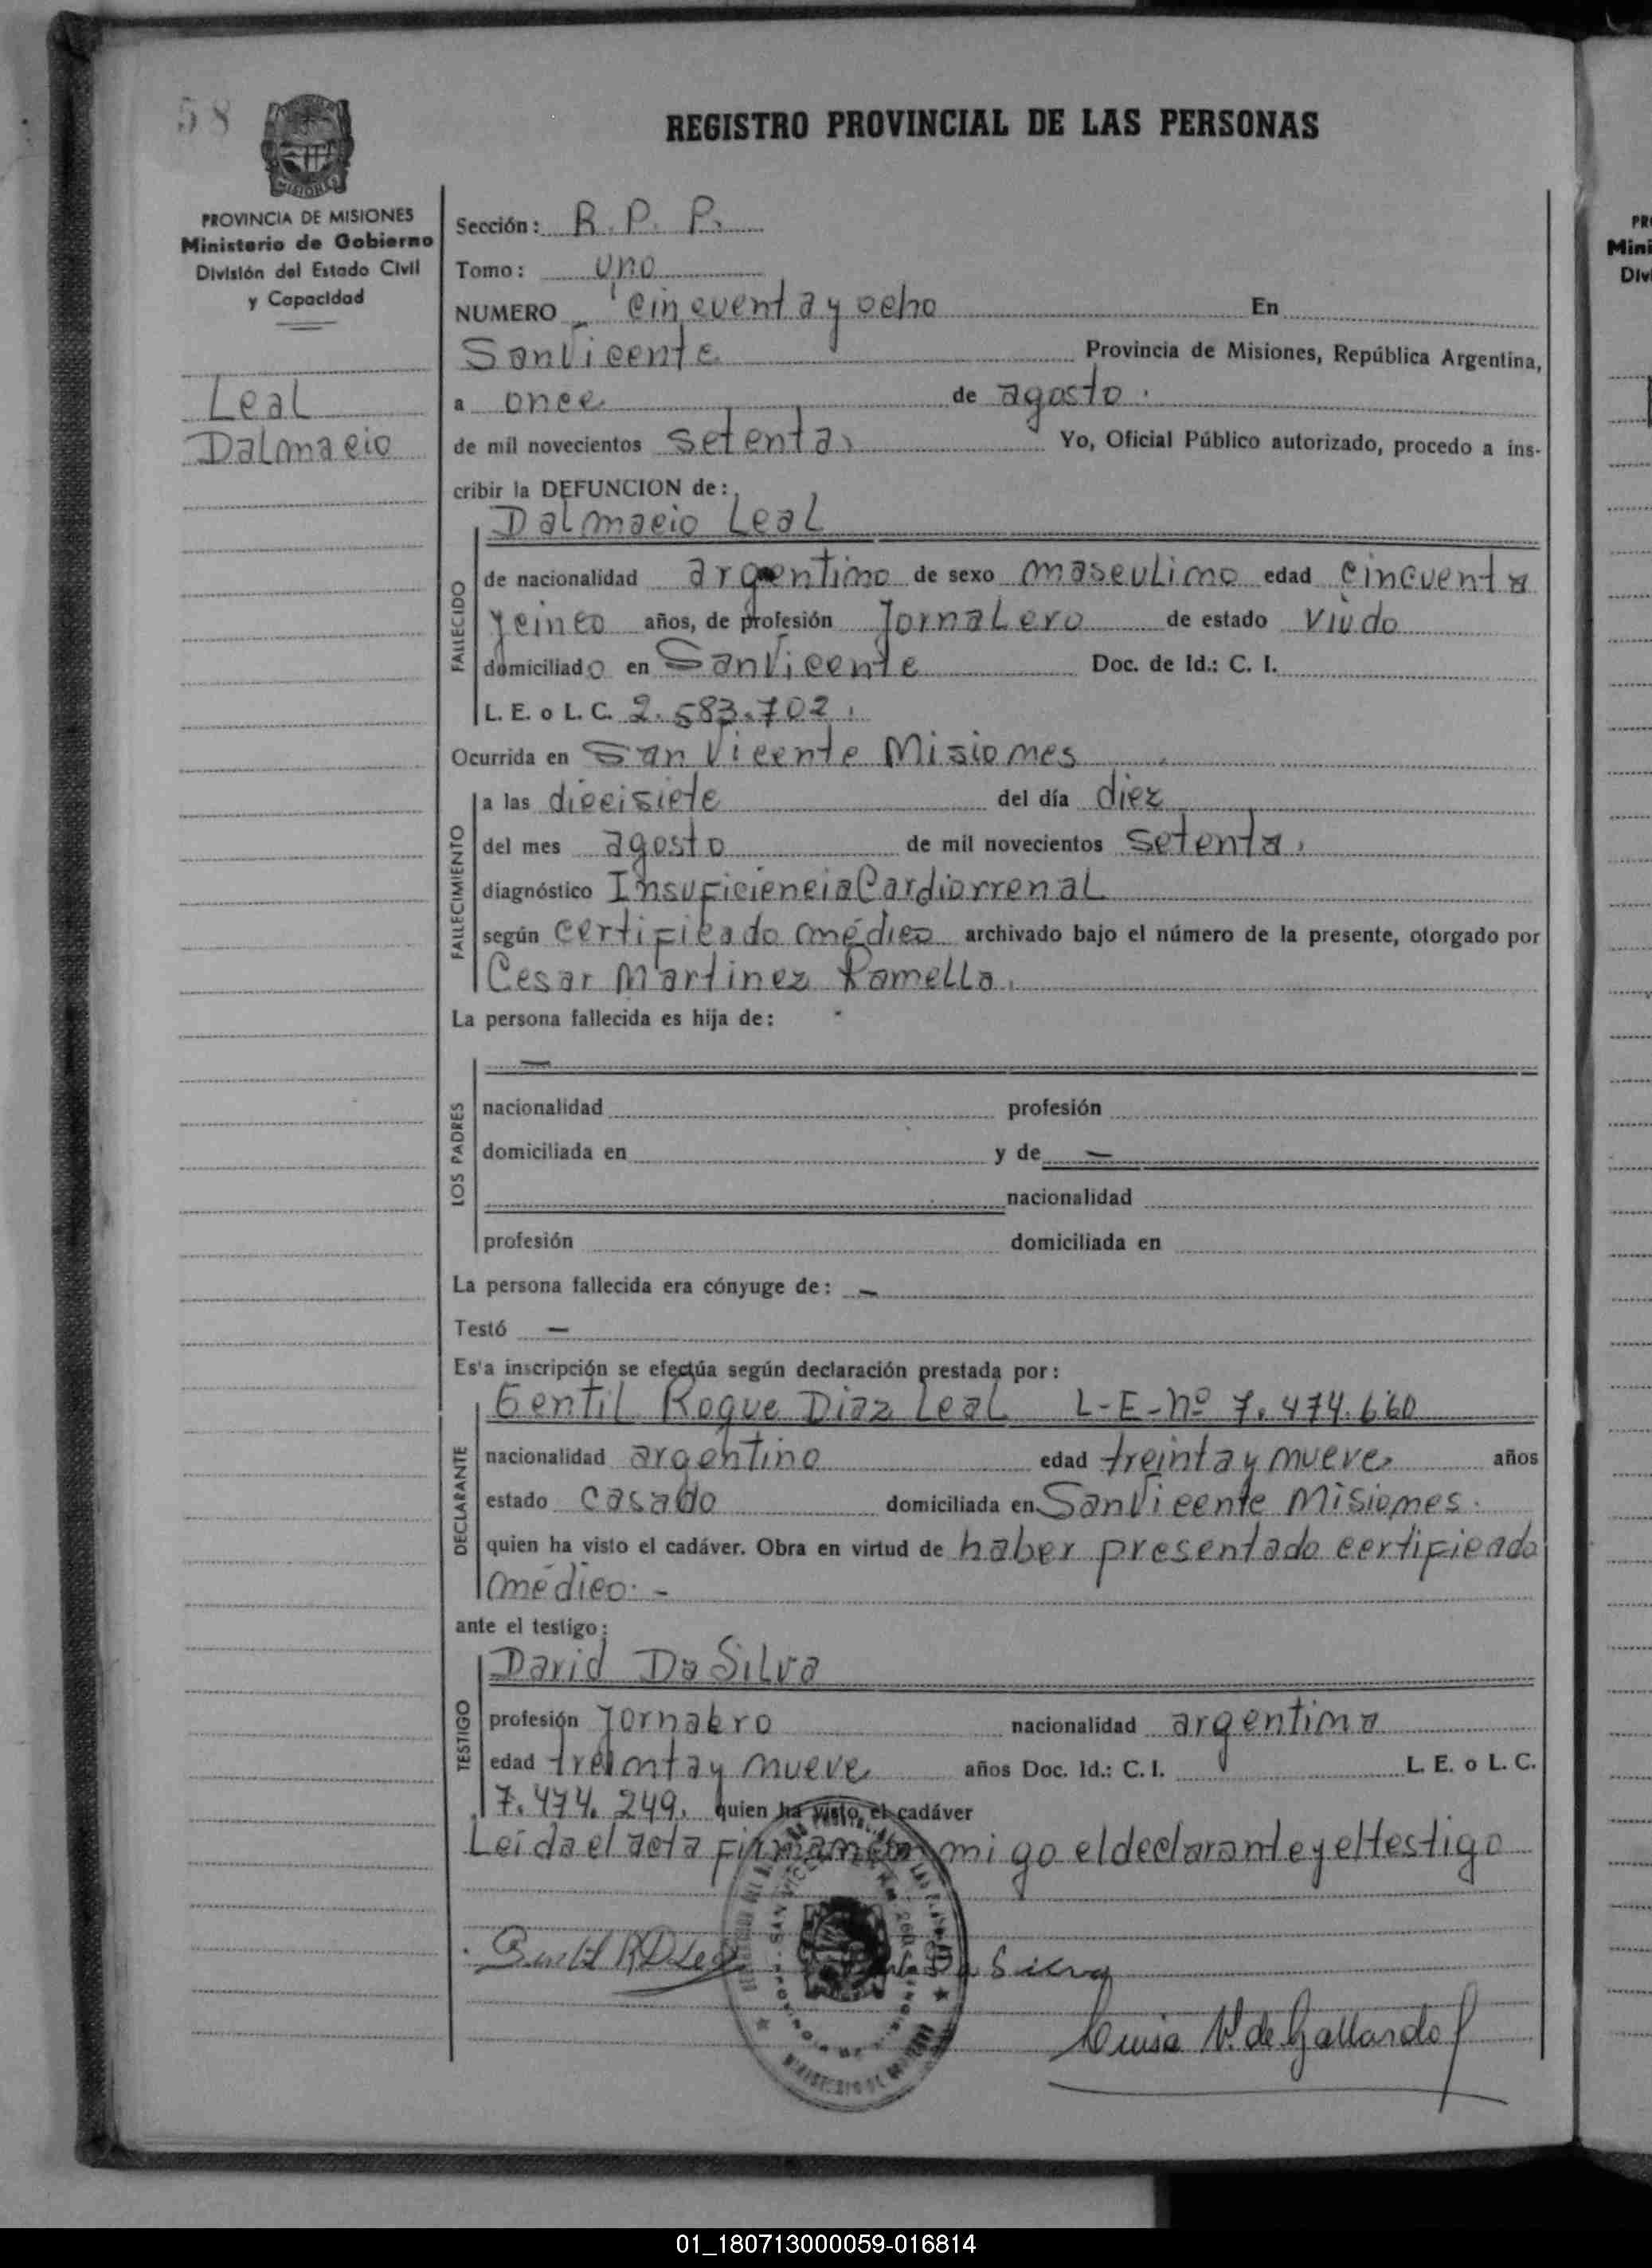 58
REGISTRO PROVINCIAL DE LAS PERSONAS
MISIONES
PROVINCIA DE MISIONES
Ministerio de Gobierno
División del Estado Civil
y Capacidad
Leal
Dalmacio
Sección: R. P. P.
Tomo: uno
NUMERO cincuenta y ocho En
San Vicente Provincia de Misiones, República Argentina,
a once de agosto.
de mil novecientos setenta, Yo, Oficial Público autorizado, procedo a ins-
cribir la DEFUNCION de:
Dalmacio Leal
FALLECIDO
de nacionalidad argentino de sexo masculino edad cincuenta
y cinco años, de profesión Jornalero de estado viudo
domiciliado en San Vicente Doc. de Id.: C. I.
L. E. o L. C. 2.583.702.
Ocurrida en San Vicente Misiones
FALLECIMIENTO
a las diecisiete del día diez
del mes agosto de mil novecientos setenta,
diagnóstico Insuficiencia Cardiorrenal
según certificado médico archivado bajo el número de la presente, otorgado por
Cesar Martinez Ramella.
La persona fallecida es hija de:
LOS PADRES
—
nacionalidad profesión
domiciliada en y de —
nacionalidad
profesión domiciliada en
La persona fallecida era cónyuge de: —
Testó —
Es'a inscripción se efectúa según declaración prestada por:
DECLARANTE
Gentil Roque Diaz Leal L-E-nº 7.474.660
nacionalidad argentino edad treinta y nueve años
estado casado domiciliada en San Vicente Misiones.
quien ha visto el cadáver. Obra en virtud de haber presentado certificado
médico. -
ante el testigo:
TESTIGO
David Da Silva
profesión Jornalero nacionalidad argentina
edad treinta y nueve años Doc. Id.: C. I. L. E. o L. C.
7.474.249. quien ha visto el cadáver
Leída el acta firman conmigo el declarante y el testigo
Da Silva
Luisa V. de Gallardo
PR
Mini
Div
01_180713000059-016814